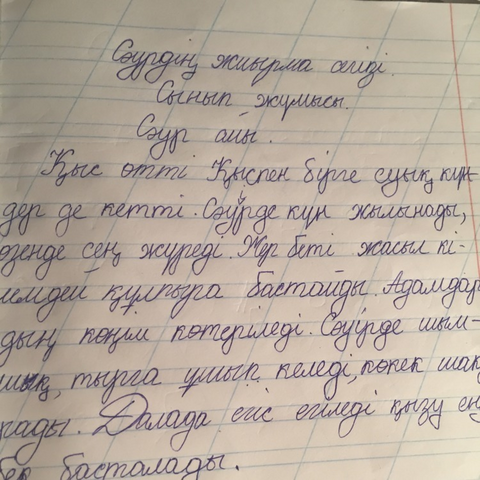 Сәурдің жиырма сегізі.
Сынып жұмысы.
Сәур айы.
Қыс өтті Қыспен бірге суық күн-
дер де кетті. Сәуірде күн жылынады,
өзенде сең жүреді. Жер беті жасыл кі-
лемдей құлпыра бастайды. Адамдар-
дың көңілі көтеріледі. Сәуірде шым-
шық, тырга ұшып келеді, көкек шақ
рады. Далада егіс егіледі қызу ең
бек басталады.